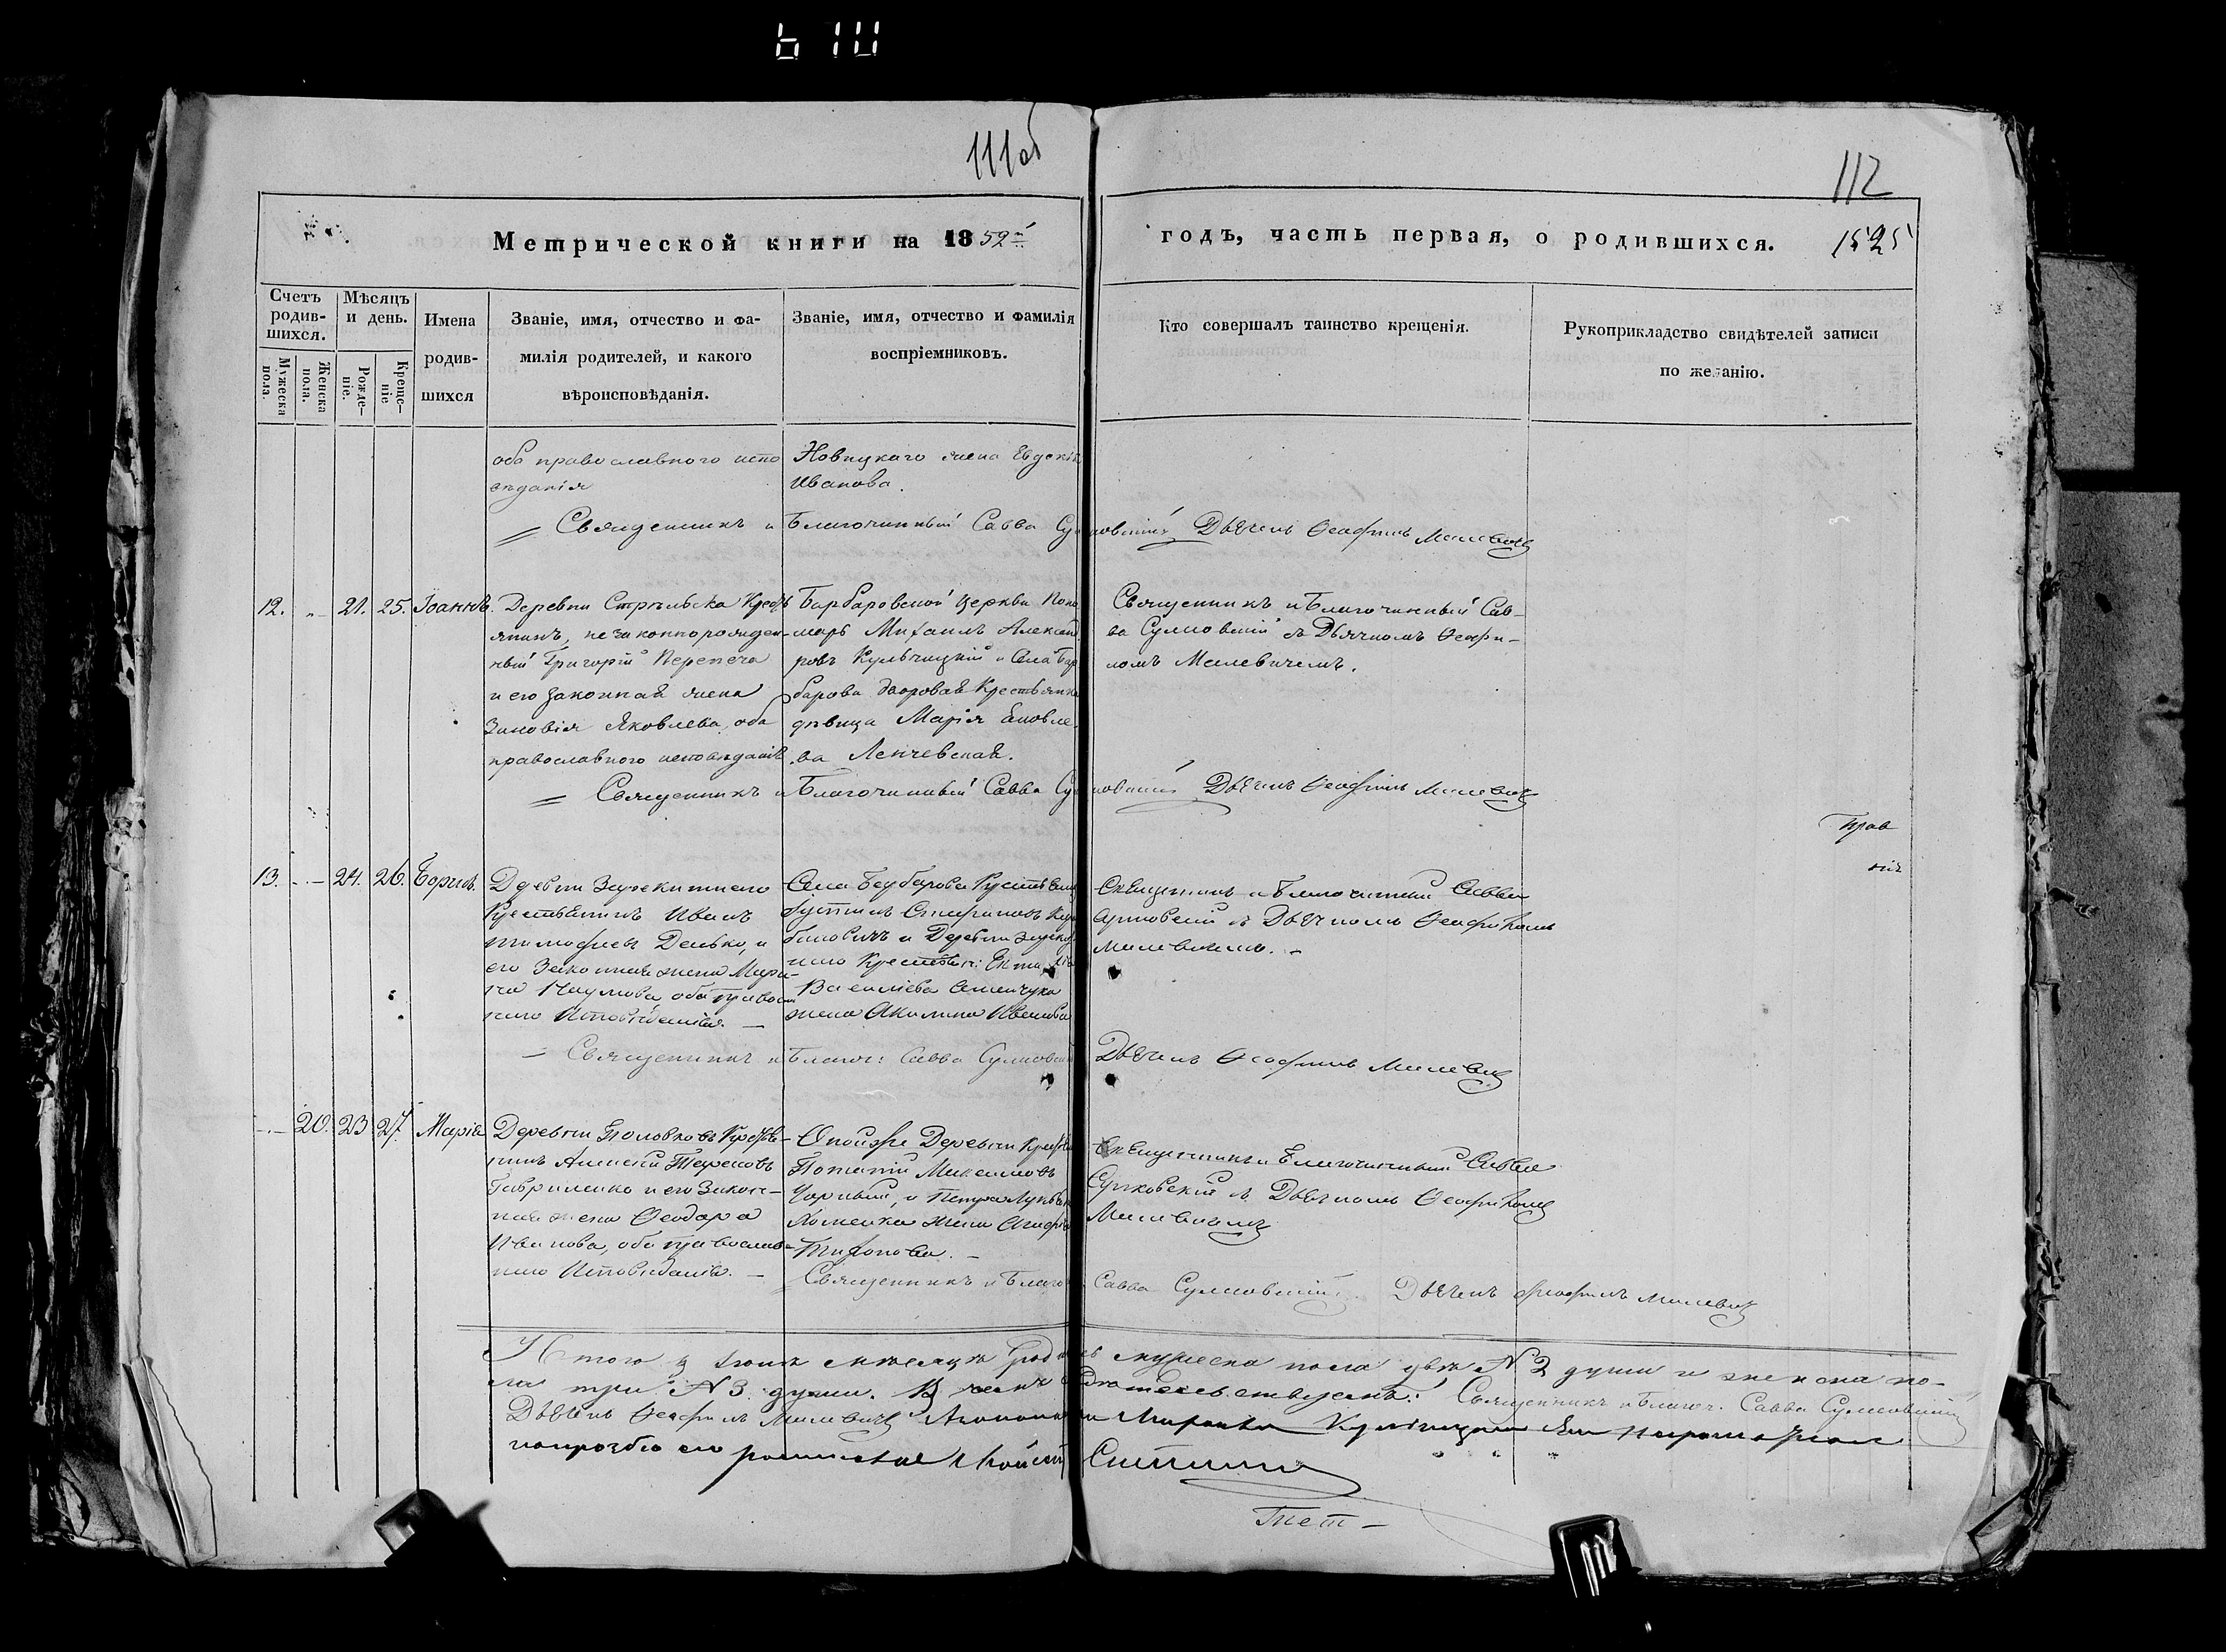 610
111об
112
Метрической книги на 1852й
годъ, часть первая, о родившихся.
1525
Счетъ родив-шихся.
Мѣсяцъ и день.
Имена родив-шихся
Званіе, имя, отчество и фа-
милія родителей, и какого
вѣроисповѣданія.
Званіе, имя, отчество и фамилія
воспріемниковъ.
Кто совершалъ таинство крещенія.
Рукоприкладство свидѣтелей записи
по желанію.
Мужеска пола.
Женска пола.
Рожде-ніе.
Креще-ніе
оба православнаго испо
вѣданія
Новицкаго жена Евдокія
Иванова.
Священникъ и Благочинный Савва Сулковскій Дьячекъ Ѳеофилъ Милевичъ
12. „ 21. 25. Іоаннъ.
Деревни Стрѣльска Крест
янинъ, незаконнорожден-
ный Григорій Перепеча
и его законная жена
Зиновія Яковлева, оба
православнаго исповѣданія
Барбаровской Церкви Поно
марь Михаилъ Александ
ровъ Кульчицкій и Села Бар
барова дворовая Крестьянка
дѣвица Марія Яковле-
ва Ленчевская.
Священникъ и Благочинный Сав-
ва Сулковскій съ Дьячкомъ Ѳеофи-
ломъ Милевичемъ.
Священникъ и Благочинный Савва Сулковскій Дьячекъ Ѳеофилъ Милевичъ
Прав
13. - - 24. 26. Борисъ.
Крестьянинъ Иванъ
Тимофеевъ Денько, и
его Законная жена Мари-
на Наумова, оба Правосл
наго Исповѣданія. —
Села Барбарова Крестьян
Василіева
жена Акилина Иванова
Священникъ и Благочинный Савва
Сулковскій съ Дьячкомъ Ѳеофиломъ
Милевичемъ. —
Священникъ и Благоч: Савва Сулковскій
Дьячекъ Ѳеофилъ Милевичъ
- - 20. 23 27. Марія
Деревни Крестья-
нинъ Алексѣй Тарасовъ
Гавриленко и его Закон-
ная жена Ѳеодора
Иванова, оба православ-
наго Исповѣданія. —
Онойже Деревни Крестья
Потапій Максимовъ
Чорный, и Петра
Хоменка жена Агафія
Тихонова. —
Священникъ и Благочинный Савва
Сулковскій съ Дьячкомъ Ѳеофиломъ
Милевичемъ
Священникъ и Благоч Савва Сулковскій. Дьячекъ Ѳеофилъ Милевичъ
Итого въ Іюнѣ мѣсяцѣ родилось мужеска пола двѣ №2 души и женска по-
ла три №3 души. Въ чемъ свидѣтельствуемъ: Священникъ и Благоч. Савва Сулковскій
Дьячекъ Ѳеофилъ Милевичъ